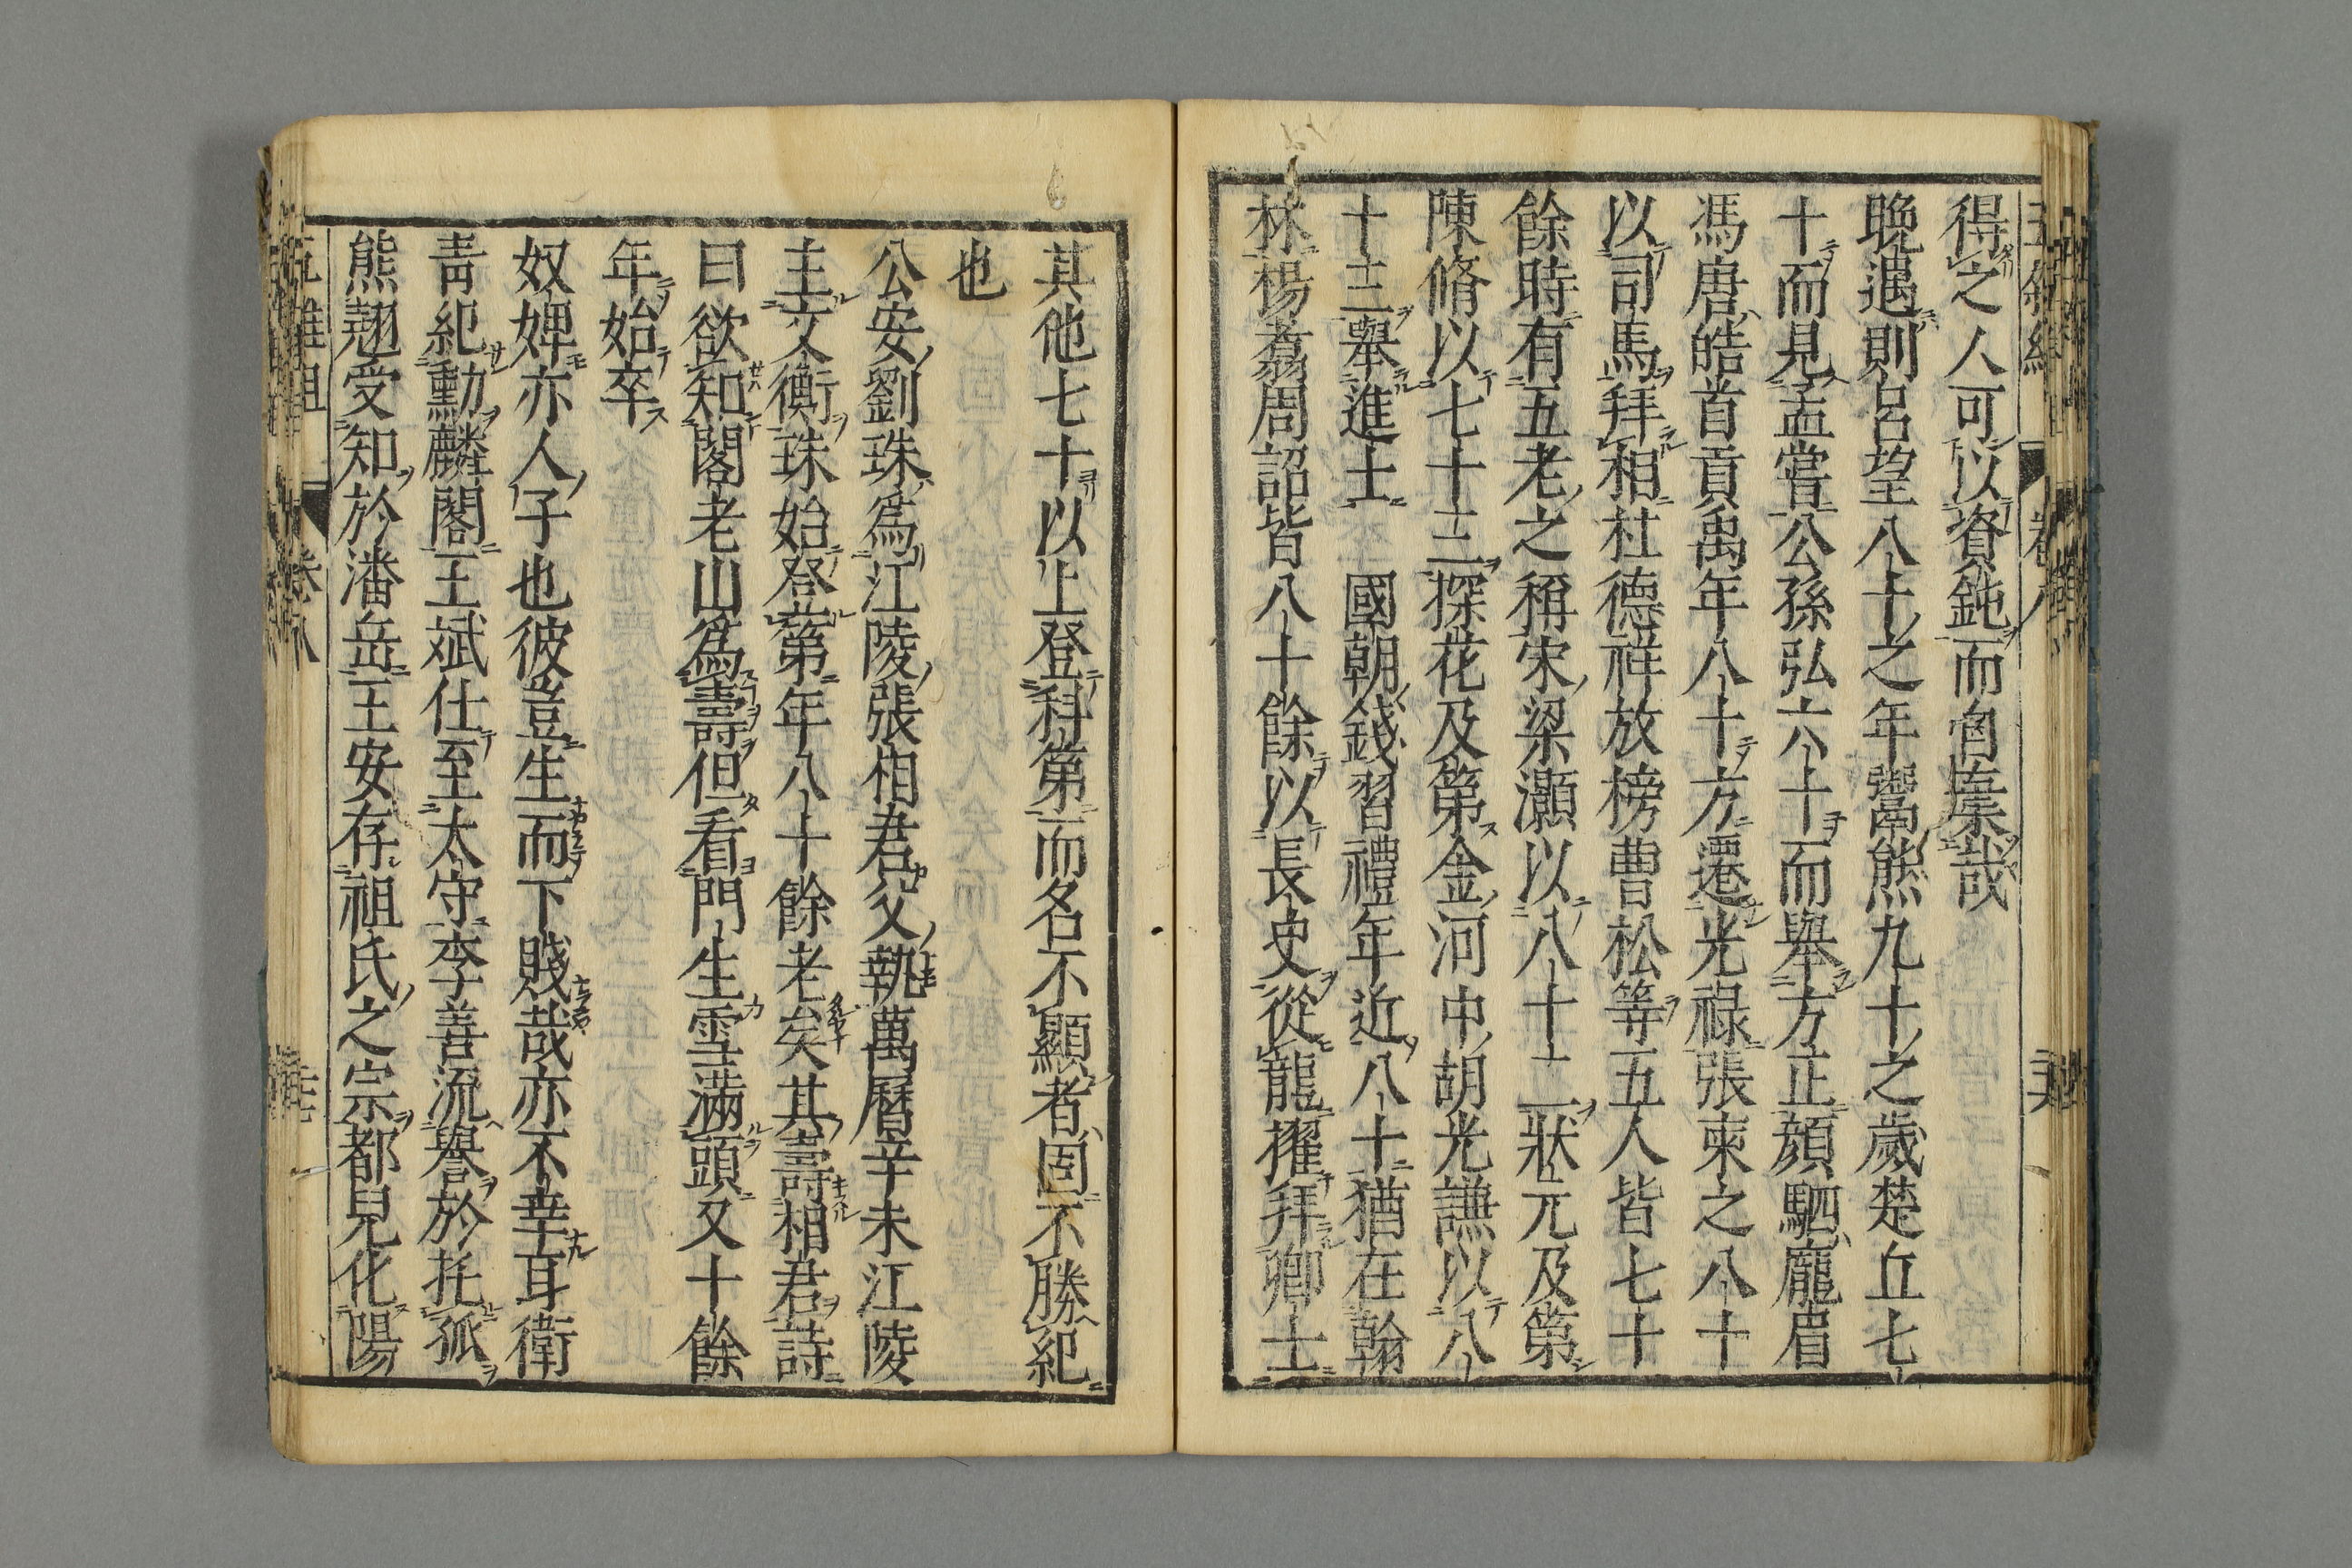 得之人可以資鈍而自棄哉
晩遇則呂望八十之年鬻熊九十之歲楚丘七
十而見孟嘗公孫弘六十而舉方正顔駟龐眉
馮唐皓首貢禹年八十方遷光祿張柬之八十
以司馬拜相杜德祥放榜曹松等五人皆七十
餘時有五老之稱宋梁灝以八十二狀元及第
陳脩以七十三探花及第金河中胡光謙以八
十三舉進士　國朝錢習禮年近八十猶在翰
林楊翥周詔皆八十餘以長史從龍擢拜卿士
其他七十以上登科第而名不顯者固不勝紀
也
公安劉珠爲江陵張相君父執萬曆辛未江陵
主文衡珠始登第年八十餘老矣其壽相君詩
曰欲知閣老山爲壽但看門生雪滿頭又十餘
年始卒
奴婢亦人子也彼豈生而下賤哉亦不幸耳衛
青紀勳麟閣王斌仕至太守李善流譽於托孤
熊翹受知於潘岳王安存祖氏之宗都兒化陽
五雜組　卷八